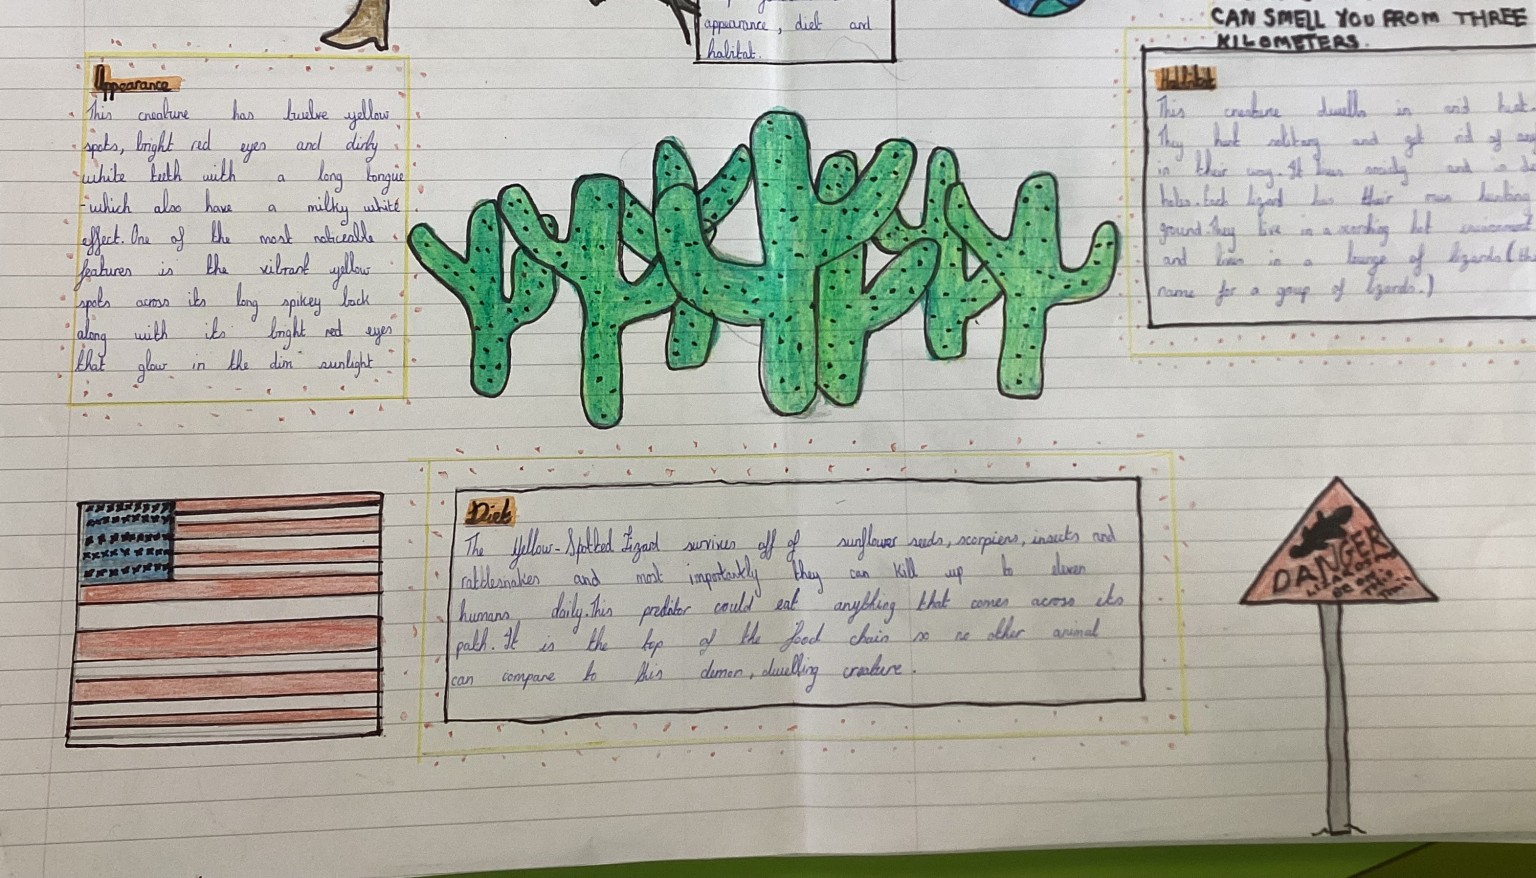 appearance, diet and
habitat.
CAN SMELL YOU FROM THREE
KILOMETERS.
Appearance
This creature has twelve yellow
spots, bright red eyes and dirty
white teeth with a long tongue
-which also have a milky white
effect. One of the most noticeable
features is the vibrant yellow
spots across its long spikey back
along with its bright red eyes
that glow in the dim sunlight
Habitat
This creature dwells in and hunt.
They hunt solitary and get rid of any
in their way. It lives and in
holes. Each lizard has their own hunting
ground. They live in a scorching hot environment
and lives in a lounge of lizards (the
name for a group of lizards.)
Diet
The Yellow-Spotted Lizard survives off of sunflower seeds, scorpions, insects and
rattlesnakes and most importantly they can kill up to eleven
humans daily. This predator could eat anything that comes across its
path. It is the top of the food chain so no other animal
can compare to this demon, dwelling creature.
DANGER